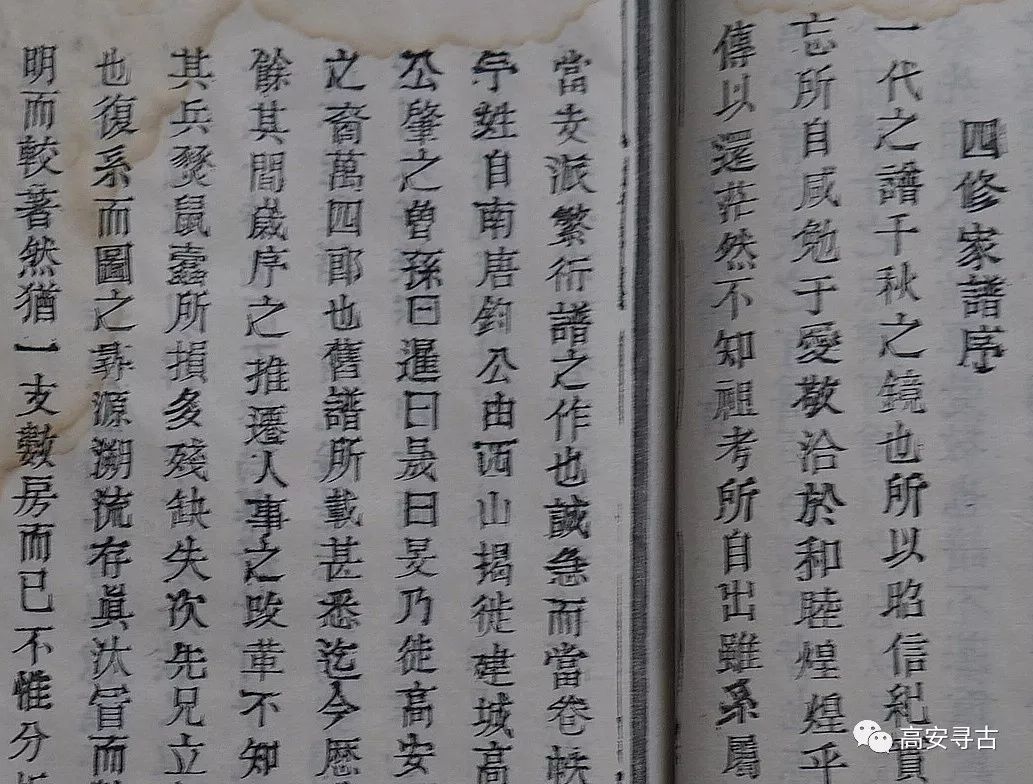 四修家譜序
一代之譜千秋之鏡也所以昭信紀實
忘所自咸勉于愛敬洽於和睦煌煌乎
傳以遠茫然不知祖考所自出雖系屬
當支派繁衍譜之作也誠急而當卷帙
予姓自南唐鈞公由西山揭徙建城高
公肇之曾孫曰暹曰晟曰旻乃徙高安
之裔萬四郎也舊譜所載甚悉迄今歷
餘其間歲序之推遷人事之改革不知
其兵燹鼠蠹所損多殘缺失次先兄立
也復系而圖之尋源溯流存眞汰冒而
明而較著然猶一支數房而已不惟分
高安寻古